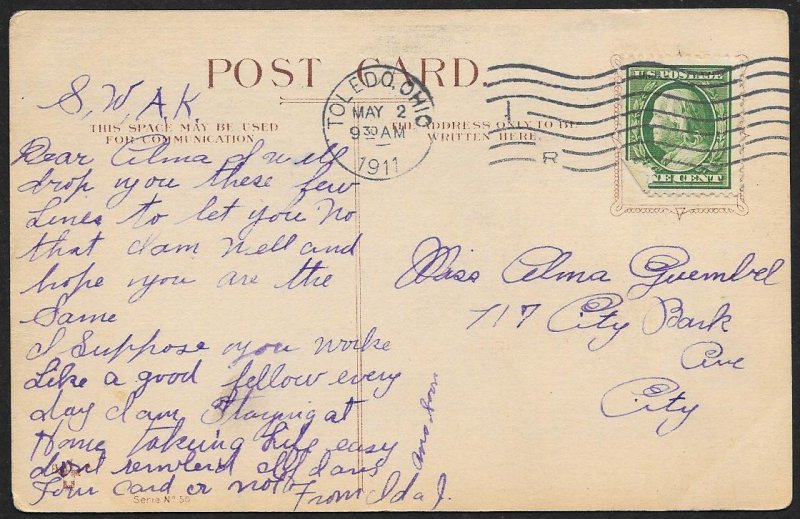 POST CARD.
S.W.A.K.
THIS SPACE MAY BE USED
FOR COMMUNICATION
THE ADDRESS ONLY TO BE
WRITTEN HERE.
TOLEDO, OHIO
MAY 2
9 30 AM
1911
1
R
U.S. POSTAGE
NE CENT
Dear Alma I will
drop you these few
Lines to let you No
that I am well and
hope you are the
Same
I Suppose you worke
Like a good fellow every
day I am Staying at
Home takeing Life easy
dont
Your card or not
From Ida J.
ans soon
Serie No 55
Miss Alma Guembel
717 City Park
Ave
City